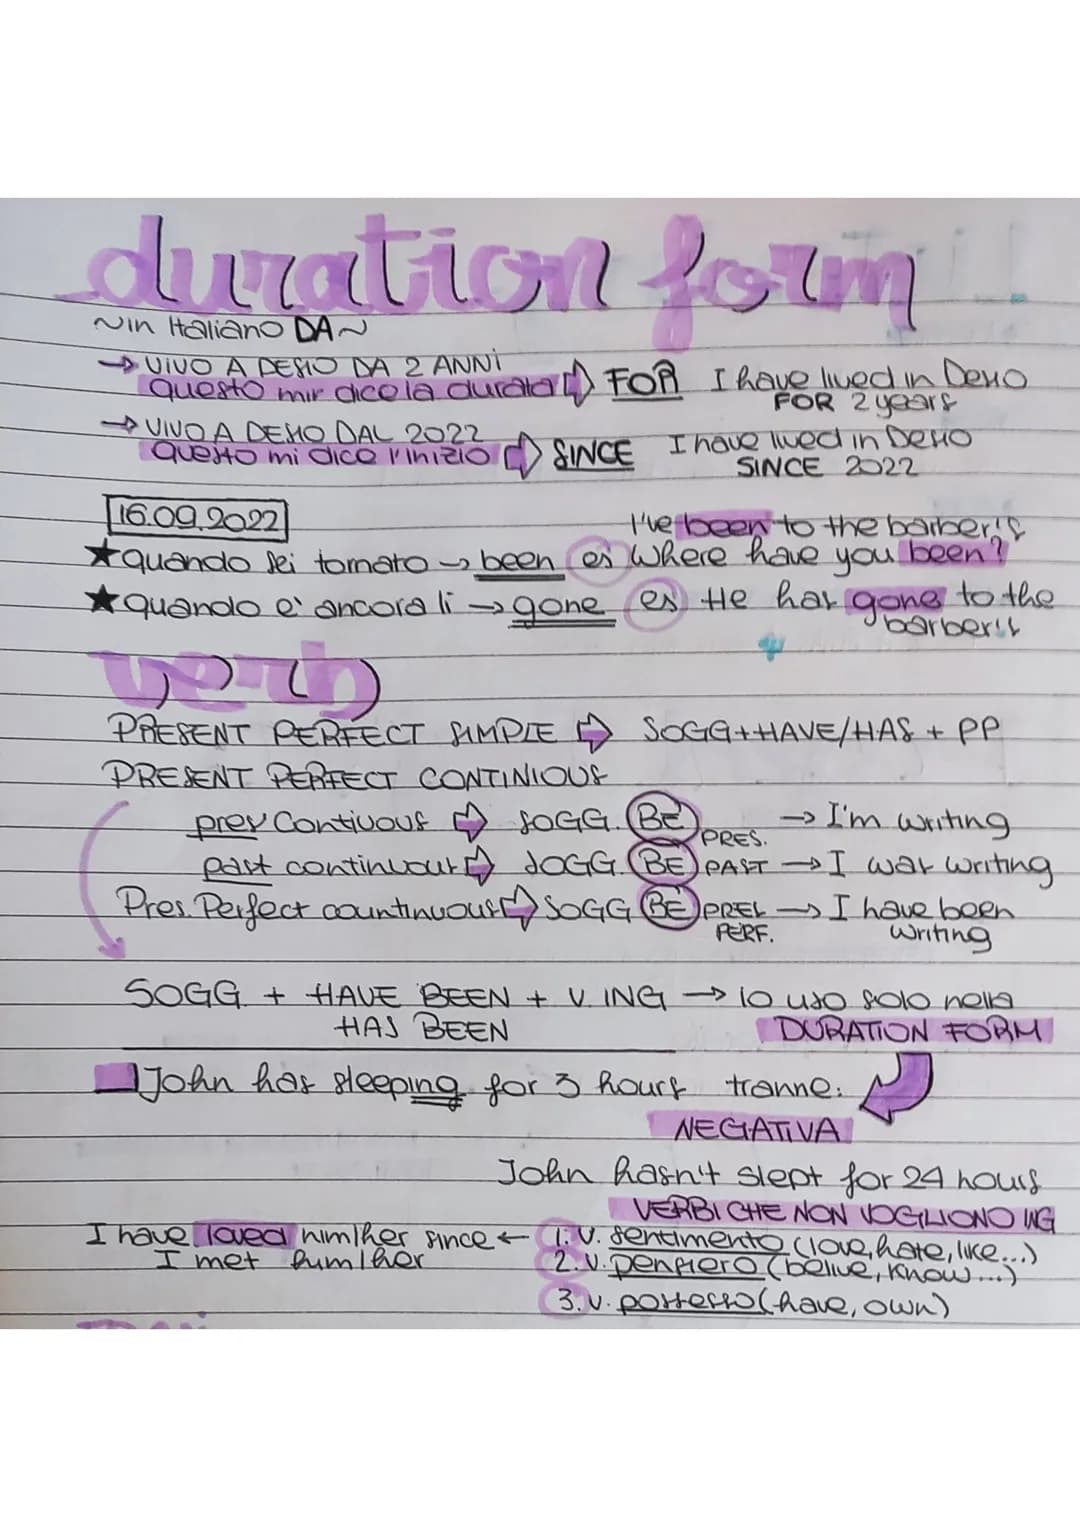 duration form
~in Italiano DA~
→ VIVO A DESIO DA 2 ANNI
questo mir dice la durata ⇨ FOR I have lived in Desio
FOR 2 years
→ VIVO A DESIO DAL 2022
questo mi dice l'inizio ⇨ SINCE I have lived in Desio
SINCE 2022
16.09.2022
I've been to the barber's
★ quando sei tornato → been es Where have you been?
★ quando e' ancora li → gone es He has gone to the
barber's
verb
PRESENT PERFECT SIMPLE ⇨ SOGG+HAVE/HAS + PP
PRESENT PERFECT CONTINIOUS
pres Contivous ⇨ SOGG. BE PRES. → I'm writing
past continuous ⇨ SOGG. BE PAST → I was writing
Pres. Perfect countinuous ⇨ SOGG BE PRES. PERF. → I have been
writing
SOGG. + HAVE BEEN + V. ING → lo uso solo nella
HAS BEEN DURATION FORM
John has sleeping for 3 hours tranne:
NEGATIVA
John hasn't slept for 24 hours
VERBI CHE NON VOGLIONO ING
I have loved him/her since ← 1. v. sentimento (love, hate, like...)
I met him/her 2. v. pensiero (belive, know...)
3. v. possesso (have, own)